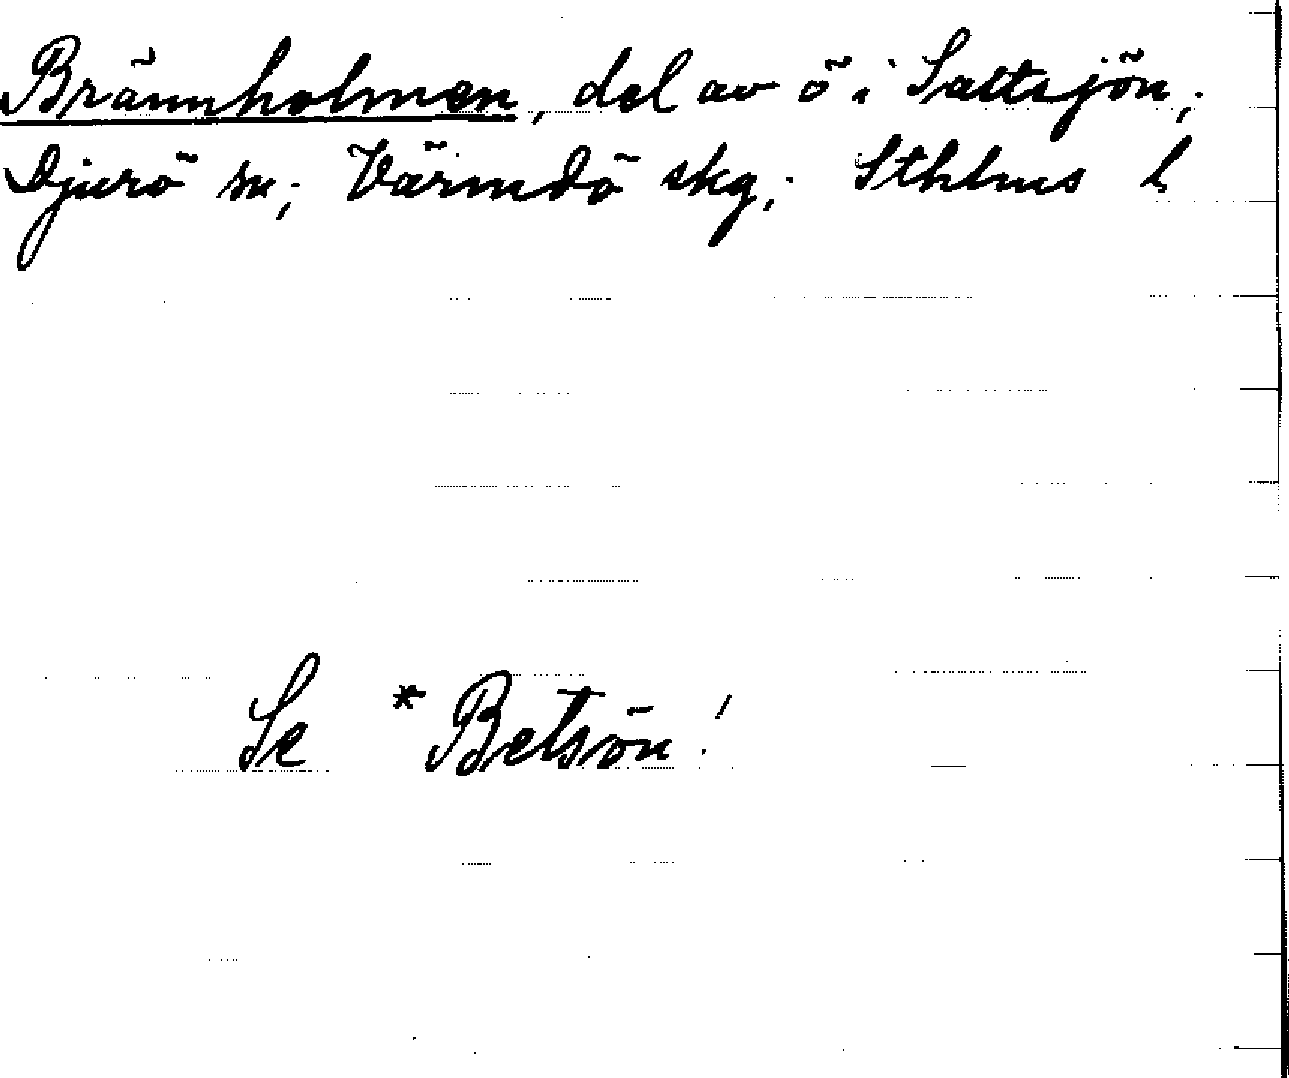 Brännholmen, del av ö i Saltsjön;
Djurö sn; Värmdö skg; Sthlms l
Se *Betsön!